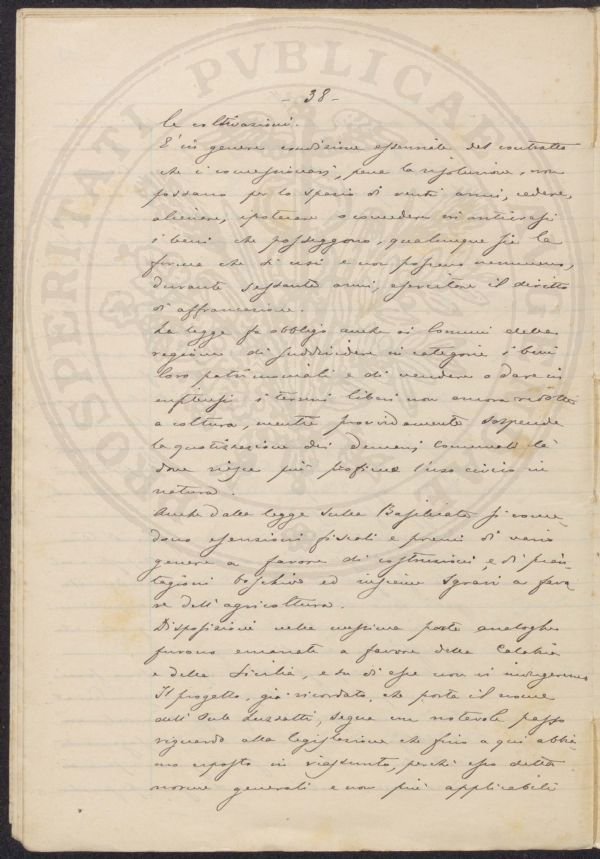 - 38 -
le coltivazioni.
È in genere condizione essenziale del contratto
che i concessionari, pena la risoluzione, non
possano per lo spazio di venti anni, cedere,
alienare, ipotecare o concedere in anticresi
i beni che posseggono, qualunque sia la
forma che si usi e non possano nemmeno,
durante sessanta anni, esercitare il diritto
di affrancazione.
La legge fa obbligo anche ai Comuni della
regione di suddividere in categorie i beni
loro patrimoniali e di vendere o dare in
enfiteusi i terreni liberi non ancora ridotti
a coltura, mentre provvidamente sospende
la quotizzazione dei demani comunali là
dove riesce più proficuo l'uso civico in
natura.
Anche dalla legge sulla Basilicata si conce-
dono esenzioni fiscali e premi di vario
genere a favore di costruzioni, e di pian-
tagioni boschive ed insieme sgravi a favo-
re dell'agricoltura.
Disposizioni nella massima parte analoghe
furono emanate a favore della Calabria
e della Sicilia, e su di esse non ci indugeremo
Il progetto, già ricordato, che porta il nome
dell' Luzzatti, segna un notevole passo
riguardo alla legislazione che fino a qui abbia-
mo esposto in riassunto, perchè esso detta
norme generali e non più applicabili
PROSPERITATI PVBLICAE